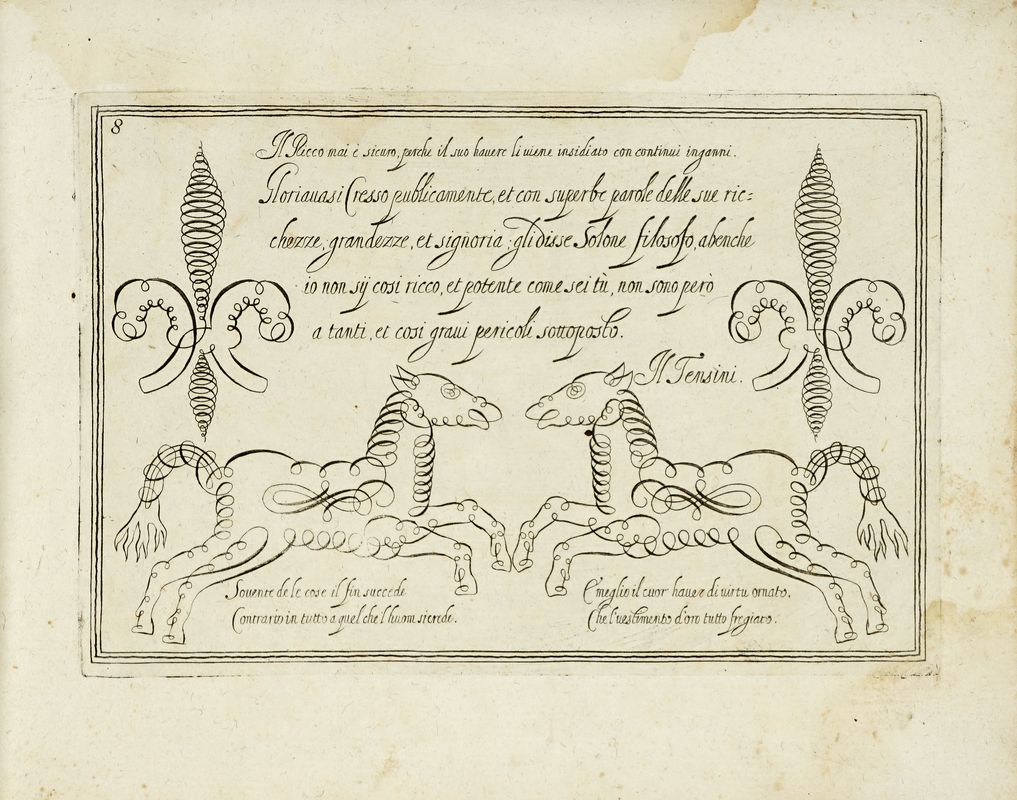 8
Il Ricco mai è sicuro, perche il suo hauere li uiene insidiato con continui inganni.
Gloriauasi Cresso publicamente, et con superbe parole delle sue ric=
chezze, grandezze, et signoria : gli disse Solone filosofo, abenche
io non sij cosi ricco, et potente come sei tù, non sono però
a tanti, et cosi graui pericoli sottoposto.
Il Tensini.
Souente de le cose il fin succede
Contrario in tutto a quel che l'huom si crede.
E' meglio il cuor hauer di uirtu ornato,
Che l'uestimento d'oro tutto fregiato.